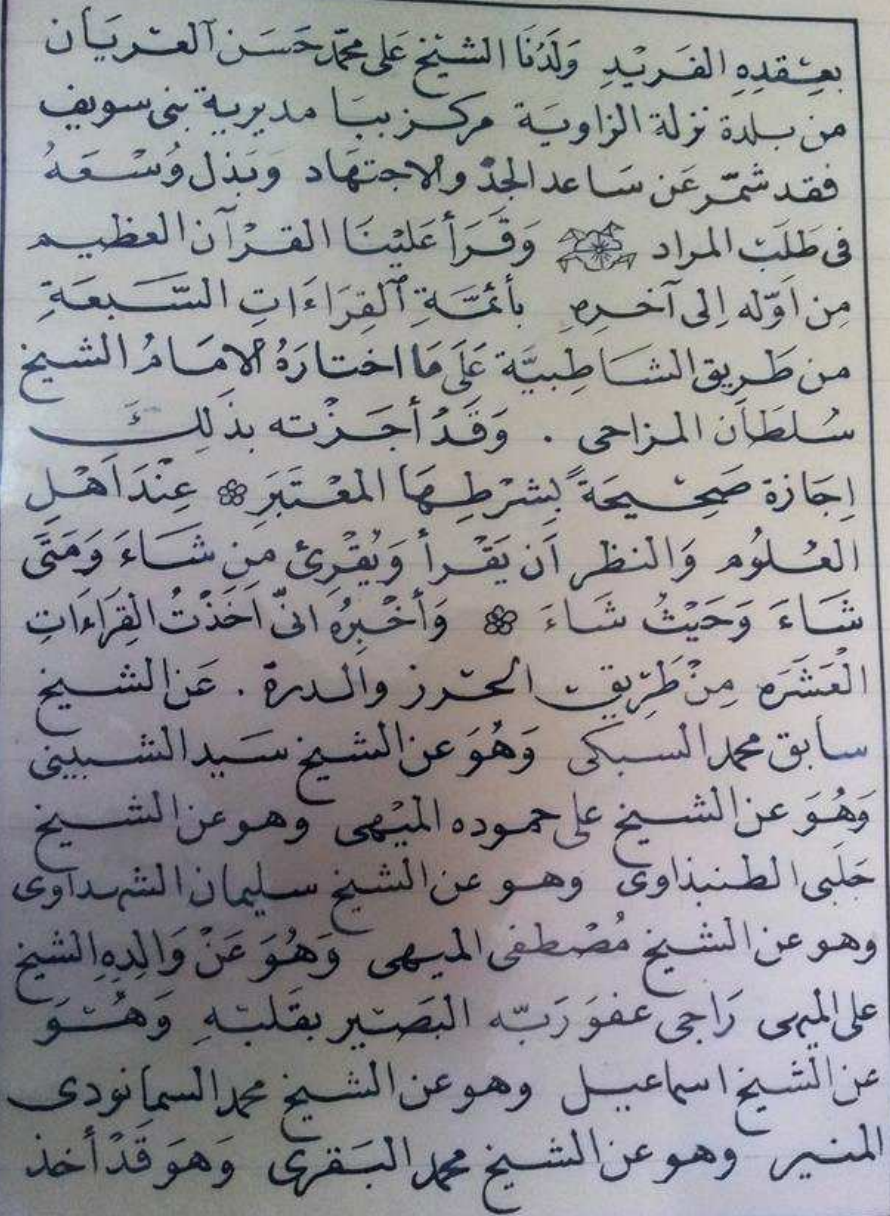 بعِقدِهِ الفَرِيْدِ وَلَدُنَا الشيخ عَلى محمّد حَسَن آلعريَان
من بلدة نزلة الزاويَة مركز ببَا مديرية بنى سويف
فقد شمّر عَن سَاعد الجدّ والاجتهَاد وَبَذل وُسْعَهُ
فى طَلَبْ المراد وَقَرَأ عَليْنَا القرْآن العظيم
مِن اَوّله اِلى آخرِهِ بأئمَّةِ ٱلقِرَاءَاتِ السَّبعَةِ
من طَرِيق الشاطِبيَّة عَلَى مَا اختارَهُ الامَامُ الشيخ
سُلطَان المزاحى . وَقَدْ أجَزْته بذَلِكَ
اِجَازة صَحِيحَةً بِشرْطِهَا المعْتَبَرَ عِنْدَ اَهْلِ
العُلُوم وَالنظر اَن يَقْرأ وَيُقْرِئ مِن شَاءَ وَمَتَى
شَاءَ وَحَيْثُ شاءَ وَأخْبِرُهُ انىّ اَخَذْتُ القِرَاءَاتِ
الْعَشَرَه مِنْ طَرِيق الحرز والدرة . عَن الشيخ
سابق محمد السبكى وَهُوَ عن الشيخ سَيد الشبينى
وَهُوَ عن الشيخ على حموده الميْهى وهو عن الشيخ
جَلَبى الطنبذاوى وهو عن الشيخ سليمان الشهداوى
وهو عن الشيخ مُصْطفى الميهى وَهُوَ عَنْ وَالِدِهِ الشيخ
على الميهى رَاجى عفوَ رَبّه البَصير بقَلبْه وَهُوَ
عن الشيخ اسماعيل وهو عن الشيخ محمد السمانودى
المنير وهو عن الشيخ محمد البَقرى وَهوَ قَدْ أخذ